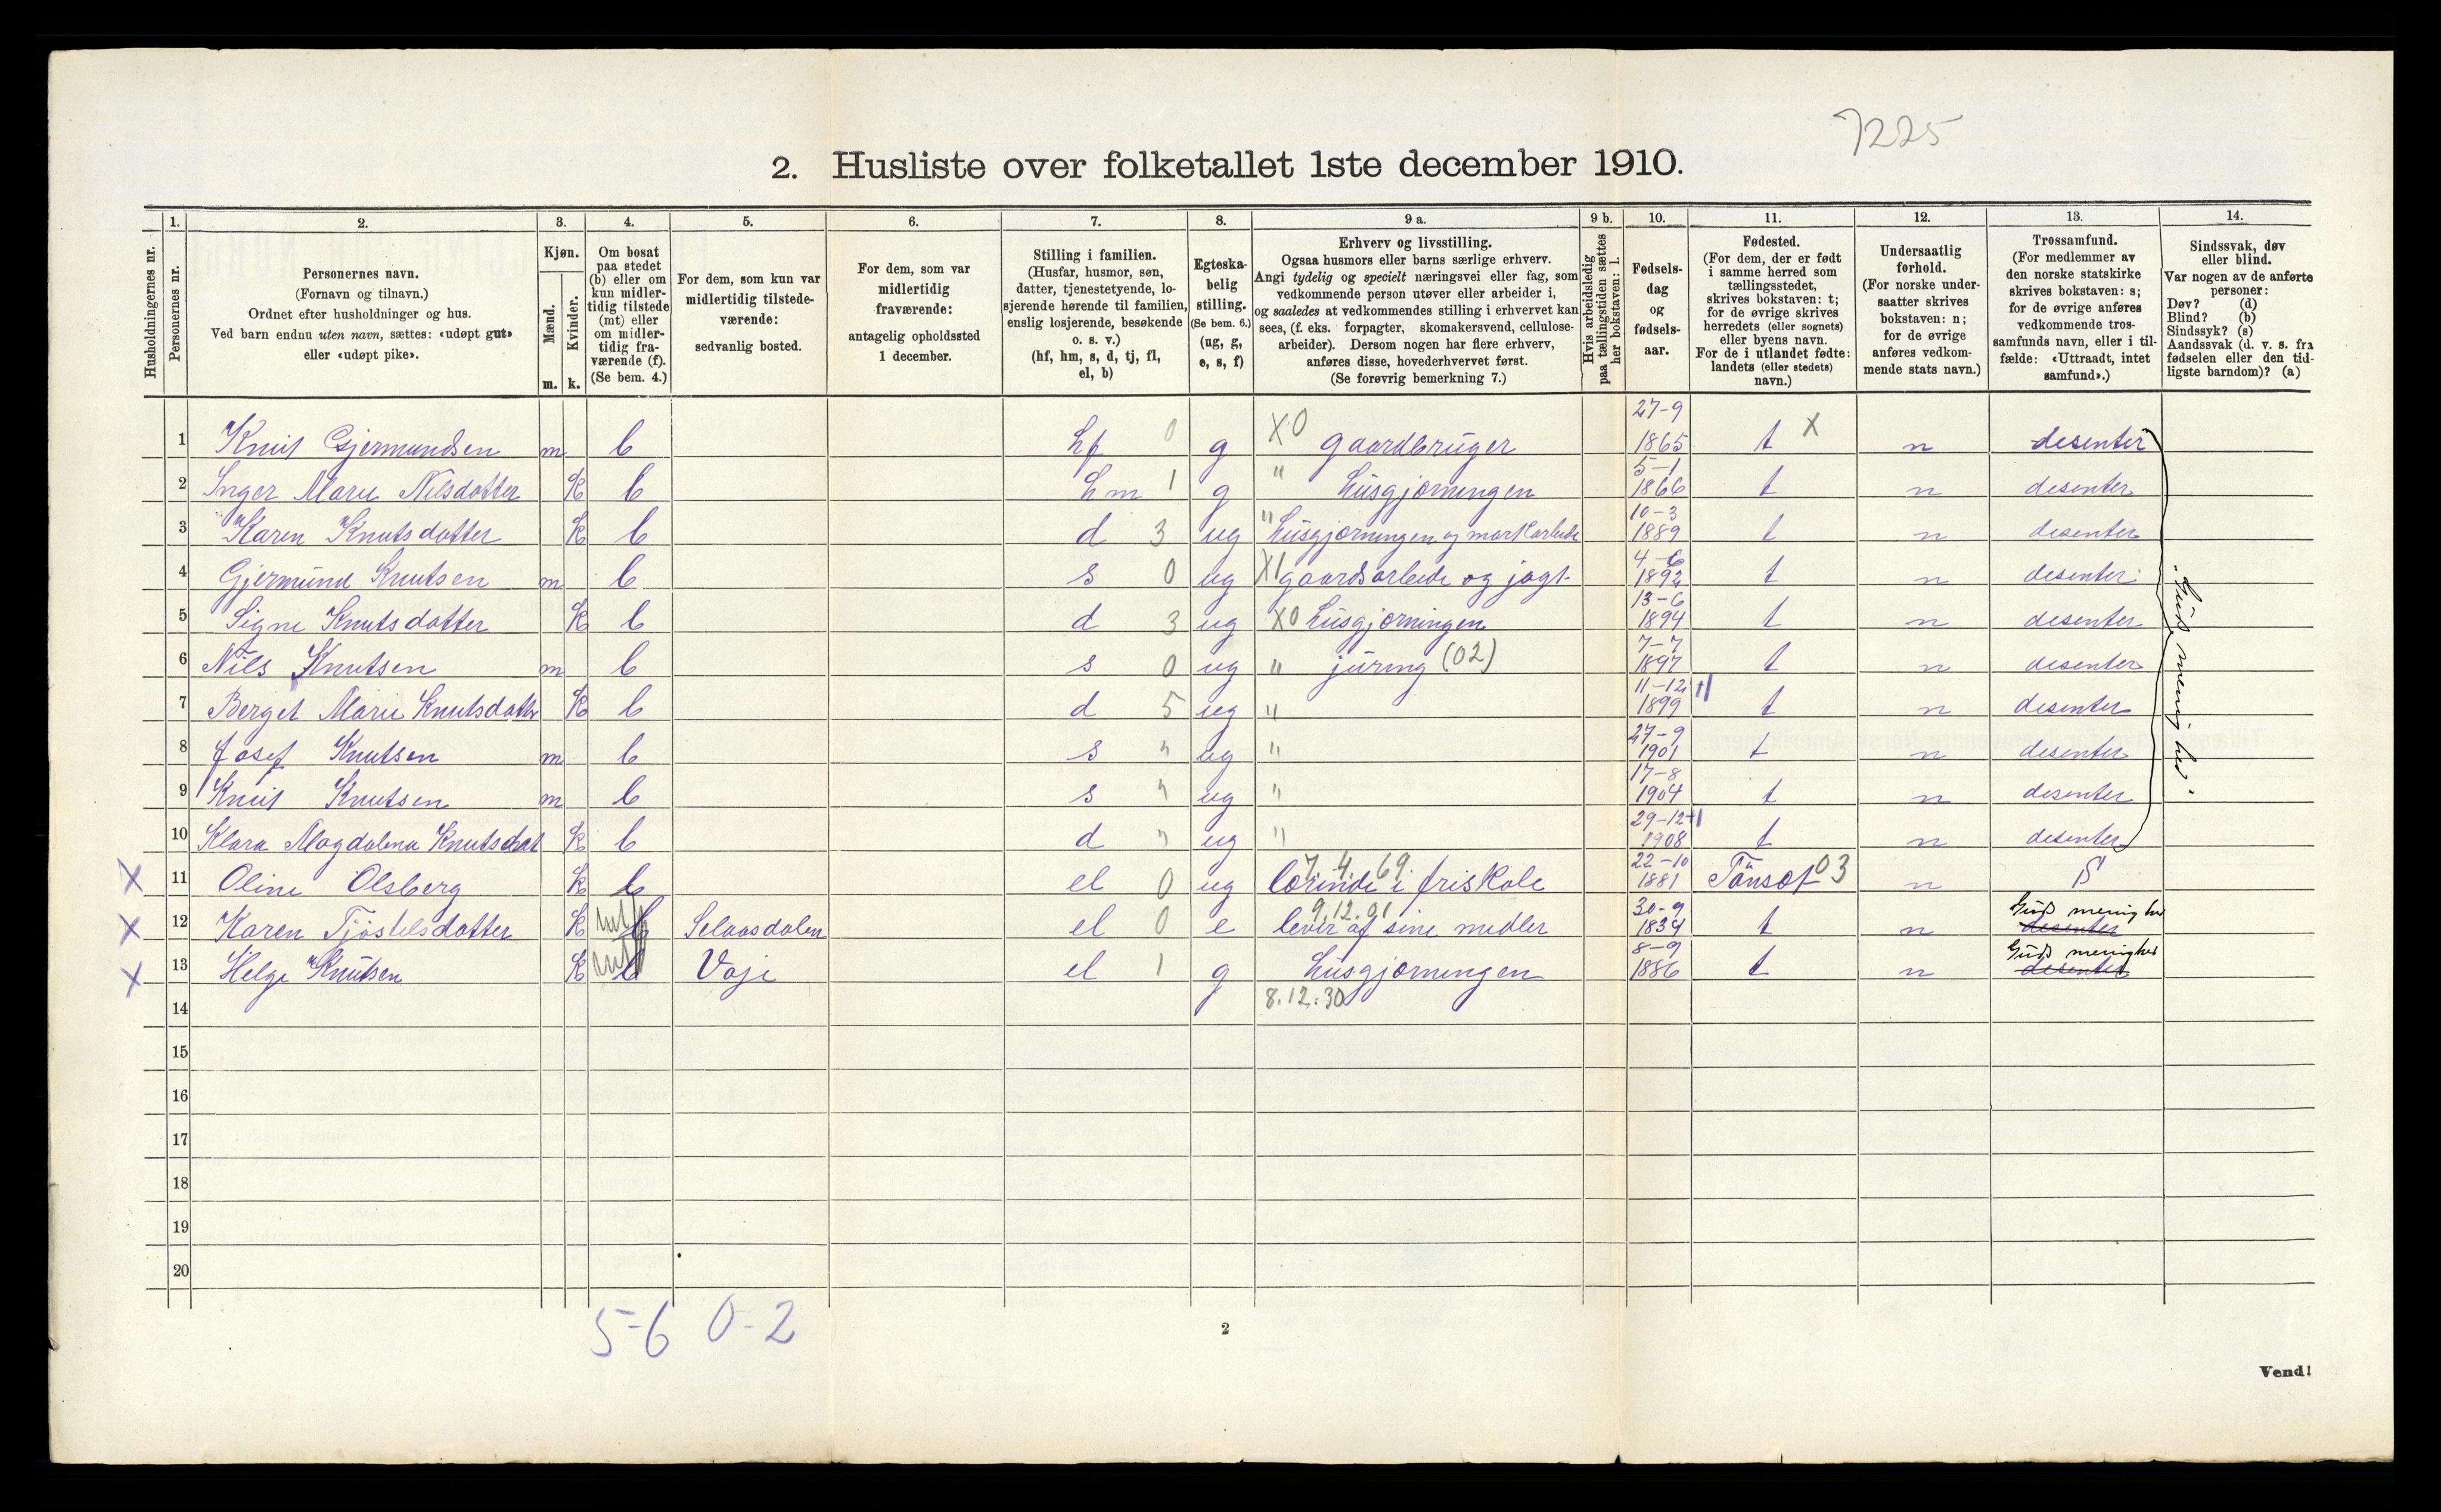 7225
2. Husliste over folketallet 1ste december 1910.
Husholdningernes nr.
1.
Personernes nr.
2.
Personernes navn.
(Fornavn og tilnavn.)
Ordnet efter husholdninger og hus.
Ved barn endnu uten navn, sættes: «udøpt gut»
eller «udøpt pike».
3.
Kjøn.
Mænd.
Kvinder.
m. k.
4.
Om bosat
paa stedet
(b) eller om
kun midler-
tidig tilstede
(mt) eller
om midler-
tidig fra-
værende (f).
(Se bem. 4.)
5.
For dem, som kun var
midlertidig tilstede-
værende:
sedvanlig bosted.
6.
For dem, som var
midlertidig
fraværende:
antagelig opholdssted
1 december.
7.
Stilling i familien.
(Husfar, husmor, søn,
datter, tjenestetyende, lo-
sjerende hørende til familien,
enslig losjerende, besøkende
o. s. v.)
(hf, hm, s, d, tj, fl,
el, b)
8.
Egteska-
belig
stilling.
(Se bem. 6.)
(ug, g,
e, s, f)
9 a.
Erhverv og livsstilling.
Ogsaa husmors eller barns særlige erhverv.
Angi tydelig og specielt næringsvei eller fag, som
vedkommende person utøver eller arbeider i,
og saaledes at vedkommendes stilling i erhvervet kan
sees, (f. eks. forpagter, skomakersvend, cellulose-
arbeider). Dersom nogen har flere erhverv,
anføres disse, hovederhvervet først.
(Se forøvrig bemerkning 7.)
9 b.
Hvis arbeidsledig
paa tællingstiden sættes
her bokstaven: l.
10.
Fødsels-
dag
og
fødsels-
aar.
11.
Fødested.
(For dem, der er født
i samme herred som
tællingsstedet,
skrives bokstaven: t;
for de øvrige skrives
herredets (eller sognets)
eller byens navn.
For de i utlandet fødte:
landets (eller stedets)
navn.)
12.
Undersaatlig
forhold.
(For norske under-
saatter skrives
bokstaven: n;
for de øvrige
anføres vedkom-
mende stats navn.)
13.
Trossamfund.
(For medlemmer av
den norske statskirke
skrives bokstaven: s;
for de øvrige anføres
vedkommende tros-
samfunds navn, eller i til-
fælde: «Uttraadt, intet
samfund».)
14.
Sindssvak, døv
eller blind.
Var nogen av de anførte
personer:
Døv? (d)
Blind? (b)
Sindssyk? (s)
Aandssvak (d. v. s. fra
fødselen eller den tid-
ligste barndom)? (a)
1 Knut Gjermundsen m b hf 0 g X0 gaardbruger 27-9 1865 t X n desenter
2 Inger Marie Nilsdotter K b hm 1 g " husgjorningen 5-1 1866 t n desenter
3 Karen Knutsdotter K b d 3 ug " husgjorningen og markarbeide 10-3 1889 t n desenter
4 Gjermund Knutsen m b s 0 ug X1 gaardsarbeide og jagt- 4-6 1892 t n desenter
5 Signe Knutsdotter K b d 3 ug X0 husgjorningen 13-6 1894 t n desenter
6 Nils Knutsen m b s 0 ug " juring (02) 7-7 1897 t n desenter
7 Berget Marie Knutsdotter K b d 5 ug " 11-12 1899 t n desenter
8 Josef Knutsen m b s " ug " 27-9 1901 t n desenter
9 Knut Knutsen m b s " ug " 17-8 1904 t n desenter
10 Klara Magdalena Knutsdat K b d " ug " 29-12 1908 t n desenter
Guds menighed
X 11 Oline Olsberg K b el 0 ug 7.4.69 lærinde i friskole 22-10 1881 03 n S
X 12 Karen Tjøstelsdotter K mt b Selaasdalen el 0 e 9.12.01 lever af sine midler 30-9 1834 t n Guds menighed desenter
X 13 Helge Knutsen K mt b Voje el 1 g husgjorningen 8-9 1886 t n Guds menighed desenter
14 8.12.30
15
16
17
18
19
20
5-6 0-2
2
Vend!